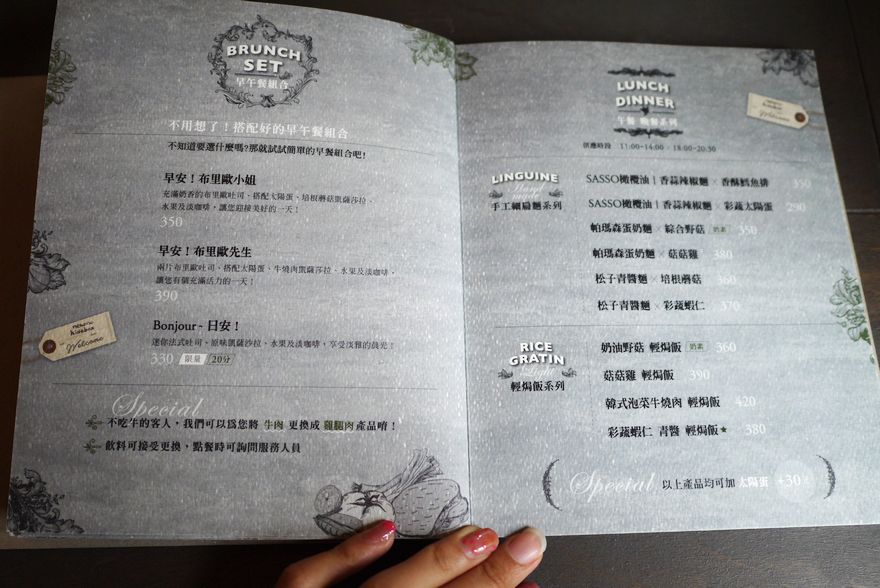 BRUNCH
SET
早午餐組合
不用想了！搭配好的早午餐組合
不知道要選什麼嗎?那就試試簡單的早餐組合吧!
早安！布里歐小姐
充滿奶香的布里歐吐司、搭配太陽蛋、培根蘑菇凱薩莎拉、
水果及淡咖啡，讓您迎接美好的一天！
350
早安！布里歐先生
兩片布里歐吐司、搭配太陽蛋、牛燒肉凱薩莎拉、水果及淡咖啡，
讓您有個充滿活力的一天！
390
Bonjour ~ 日安！
迷你法式吐司、原味凱薩沙拉，水果及淡咖啡，享受淡雅的晨光！
330 限量 20分
Welcome
Special
不吃牛的客人，我們可以為您將 牛肉 更換成 雞腿肉 產品唷！
飲料可接受更換，點餐時可詢問服務人員
LUNCH
DINNER
午餐 晚餐系列
供應時段 11:00-14:00 / 18:00-20:30
Welcome
LINGUINE
Hand
made
手工細扁麵系列
SASSO橄欖油 | 香蒜辣椒麵 × 香酥鱈魚排 350
SASSO橄欖油 | 香蒜辣椒麵 × 彩蔬太陽蛋 290
帕瑪森蛋奶麵 × 綜合野菇 奶素 350
帕瑪森蛋奶麵 × 菇菇雞 380
松子青醬麵 × 培根蘑菇 360
松子青醬麵 × 彩蔬蝦仁 370
RICE
GRATIN
Light
輕焗飯系列
奶油野菇 輕焗飯 奶素 360
菇菇雞 輕焗飯 390
韓式泡菜牛燒肉 輕焗飯 420
彩蔬蝦仁 青醬 輕焗飯★ 380
Special 以上產品均可加 太陽蛋 +30